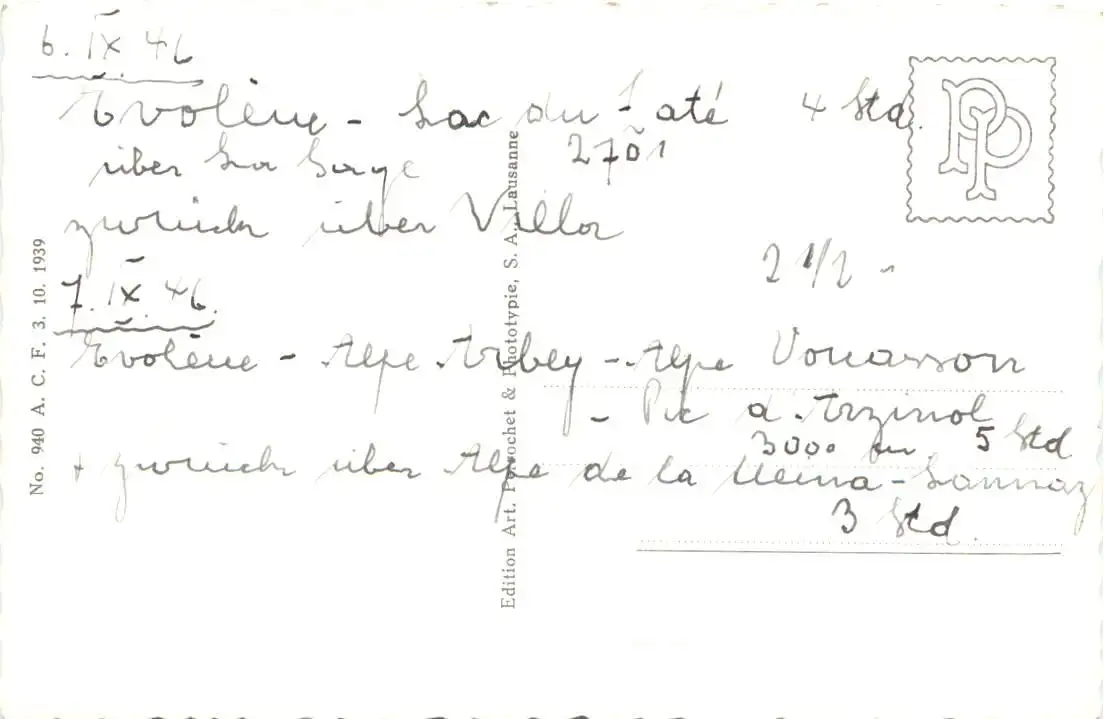 6. IX 46
Evolène - Lac du 4 Std.
2701
über La Sage
zurück über Villa
2 1/2 "
7. IX 46.
Evolène - Alpe Arbey - Alpe Vouasson
- Pic d'Arzinol
3000 m, 5 Std
+ zurück über Alpe de la Meina - Lannaz
3 Std.
No. 940 A. C. F. 3. 10. 1939
Edition Art. Perrochet & Phototypie, S. A., Lausanne
PP